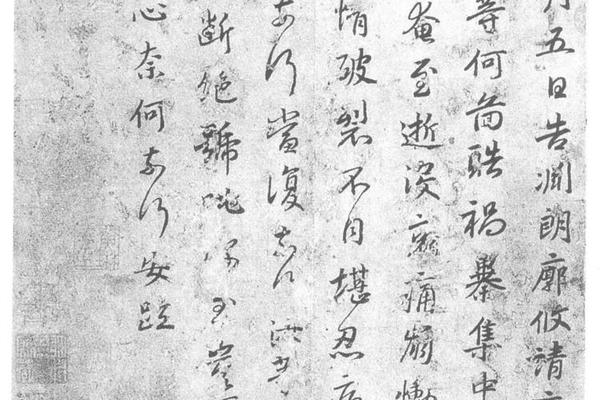 月五日告淵朗廓攸靖
等何圖酷禍暴集中
奄至逝没哀痛崩慟
情破裂不自堪忍痛
奈何當復奈何汝等
斷絕號咷深至豈
心奈何奈何安疏